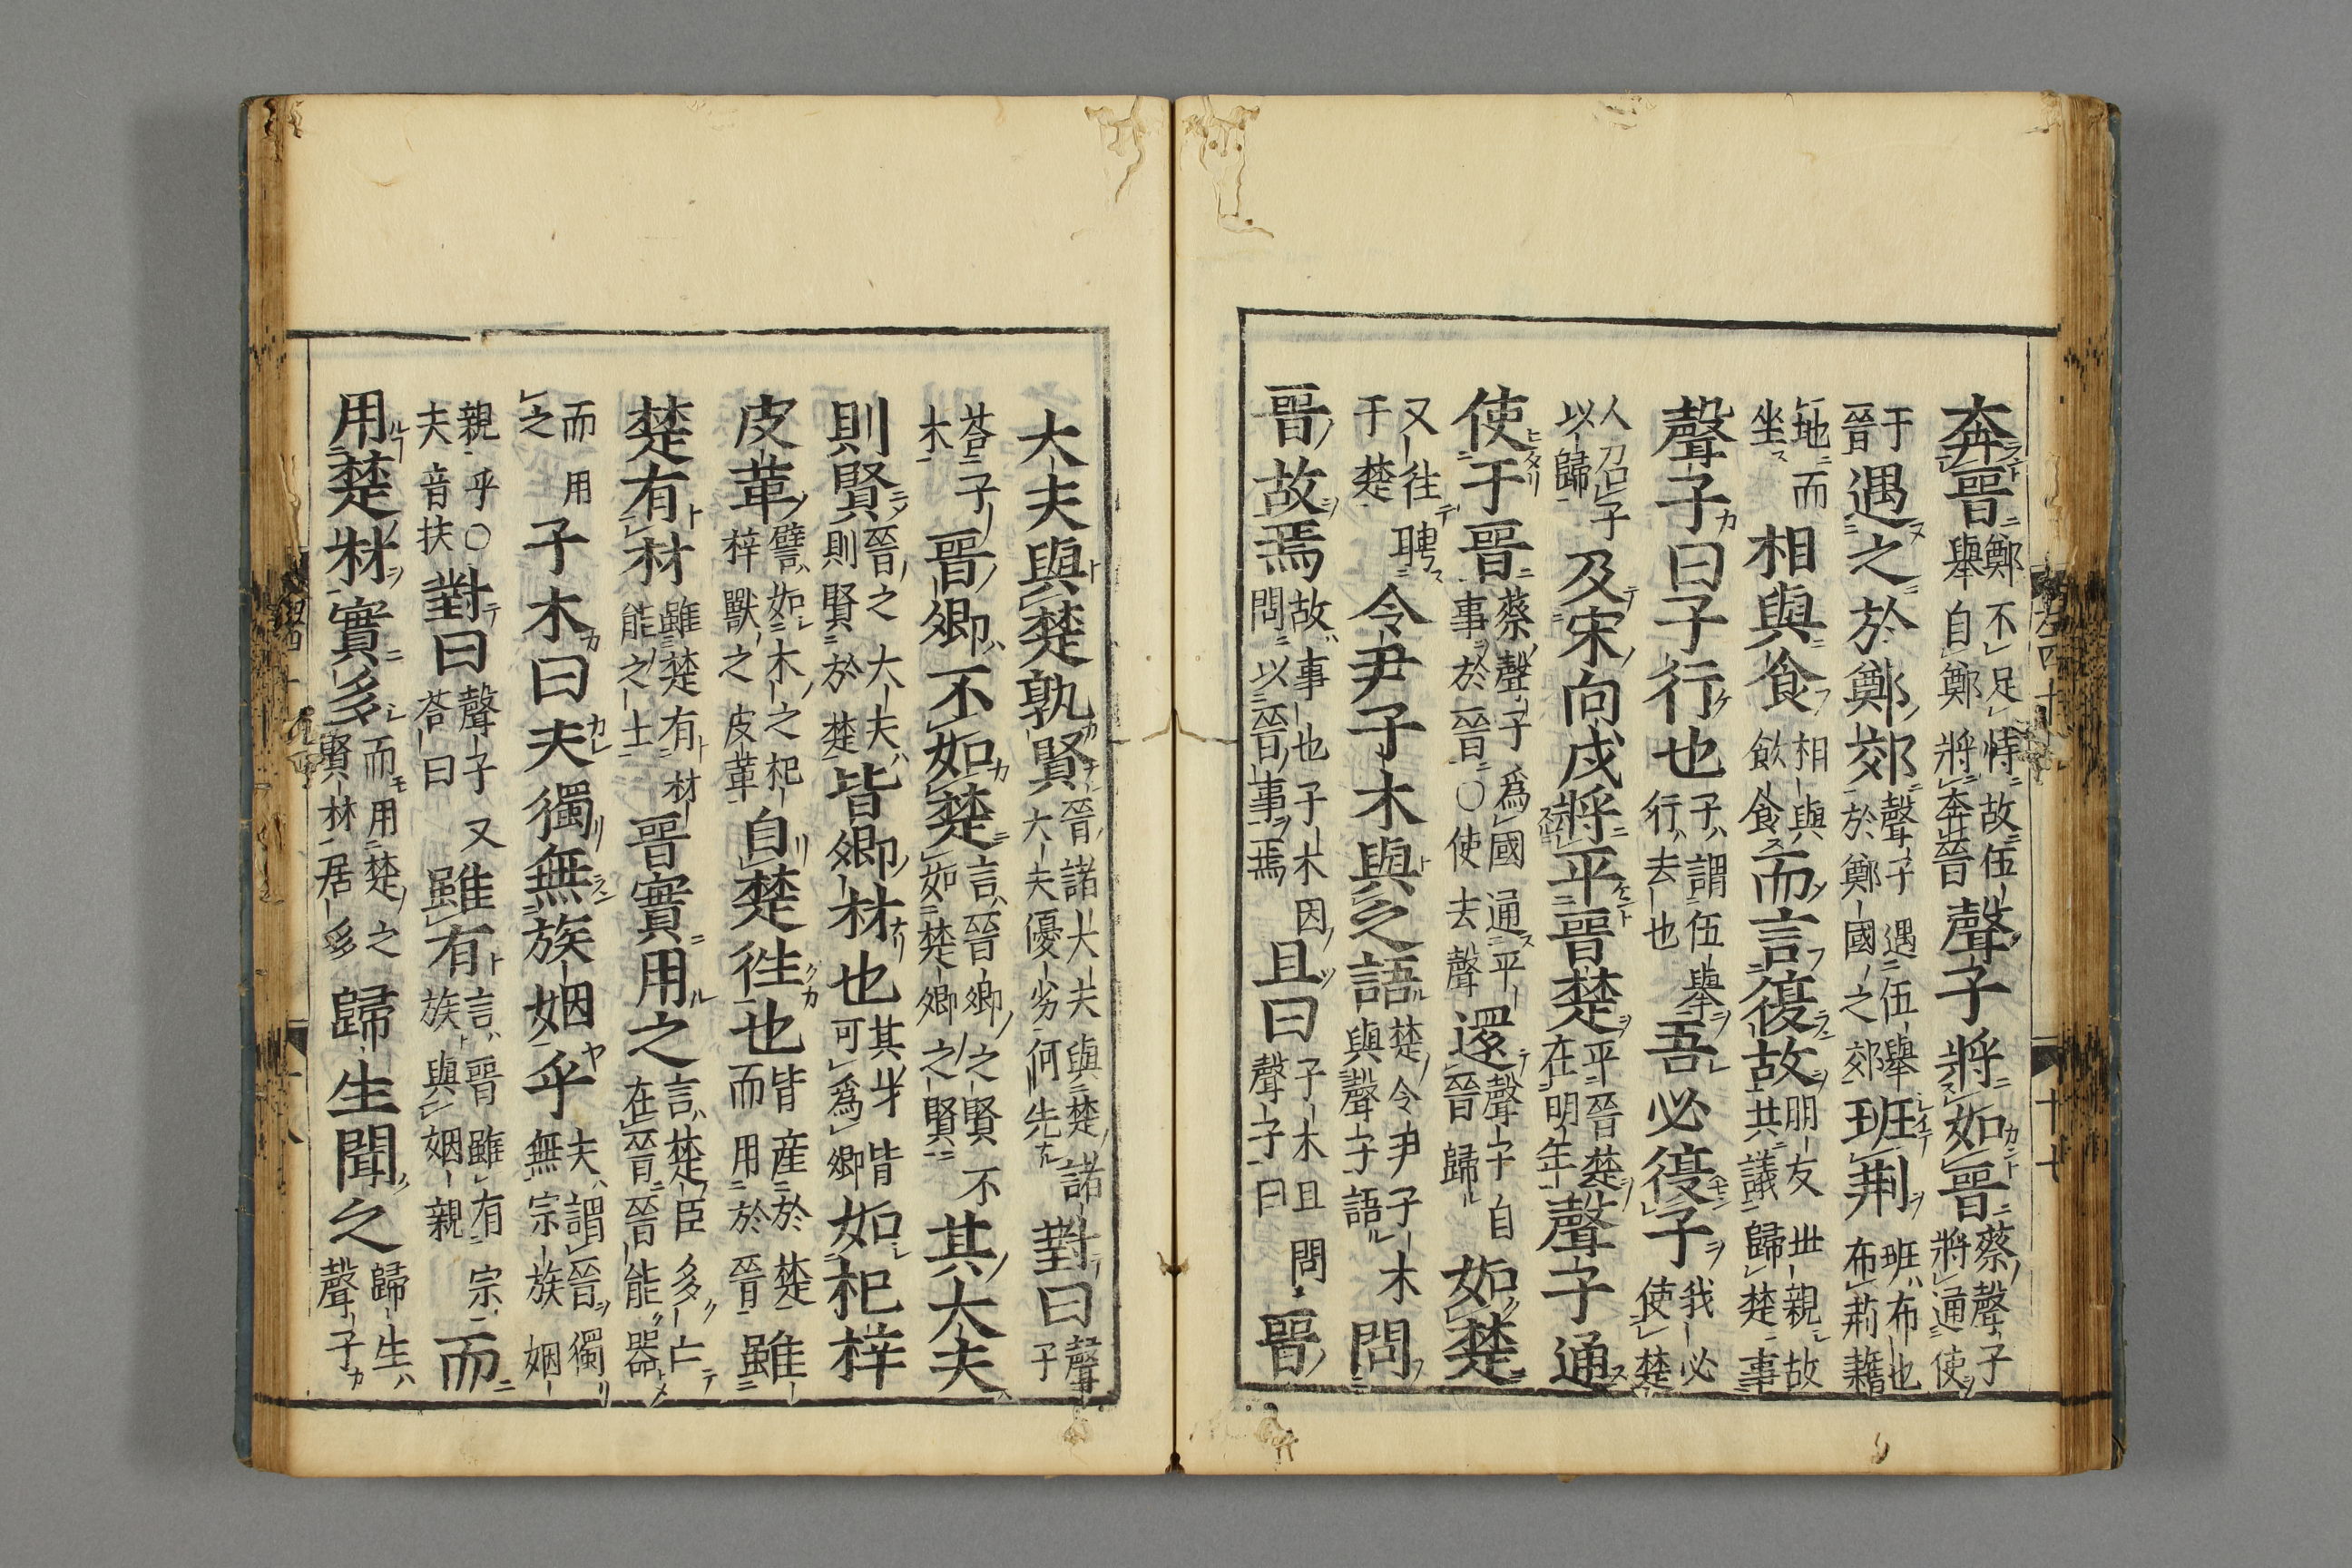 奔晉鄭不足恃故伍舉自鄭將奔晉聲子將如晉蔡聲子將通使
于晉遇之於鄭郊聲子遇伍舉於鄭國之郊班荆班布也布荊藉
地而坐相與食相與飲食而言復故朋友世親故共議歸楚事
聲子曰子行也子謂伍舉行去也吾必復子我必使楚
人召子以歸及宋向戌將平晉楚平晉楚在明年聲子通
使于晉蔡聲子爲國通平事於晉○使去聲還聲子自晉歸如楚
又往聘于楚令尹子木與之語楚令尹子木與聲子語問
晉故焉故事也子木因問以晉事焉且曰子木且問聲子曰晉
大夫與楚孰賢晉諸大夫與楚諸大夫優劣何先對曰聲子
荅子木晉卿不如楚言晉卿之賢不如楚卿之賢其大夫
則賢晉之大夫則賢於楚皆卿材也其才皆可爲卿如杞梓
皮革譬如木之杞梓獸之皮革自楚徃也皆産於楚而用於晉雖
楚有材雖楚有材能之士晉實用之言楚臣多亡在晉晉能器
而用之子木曰夫獨無族姻乎夫謂晉獨無宗族姻
親乎○夫音扶對曰聲子又荅曰雖有言晉雖有宗族與姻親而
用楚材實多而用楚之賢材居多歸生聞之歸生聲子
左四十
十七
十八